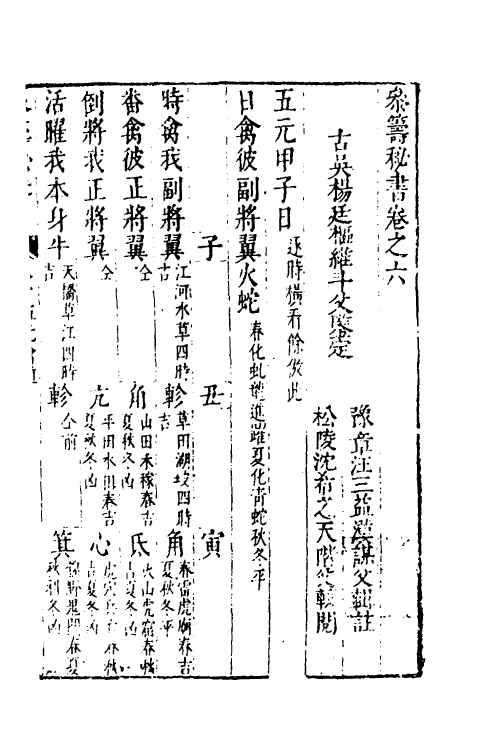 參籌秘書卷之六
古吳楊廷樞維斗父鑒定
豫章汪三益漢謀父輯註
松陵沈希之天階父較閱
五元甲子日 逐時橫看餘倣此
日禽彼副將翼火蛇 春化虬龍進躍夏化青蛇秋冬平
子 丑 寅
時禽我副將翼 江河水草四時吉 軫 草田湖坟四時吉 角 春雷虎廟春吉夏秋冬平
番禽彼正將翼 仝 角 山田禾稼春吉夏秋冬凶 氐 火山虎窟春秋吉夏冬凶
倒將我正將翼 仝 亢 平田水田春吉夏秋冬凶 心
活曜我本身牛 江四時吉 軫 仝前 箕